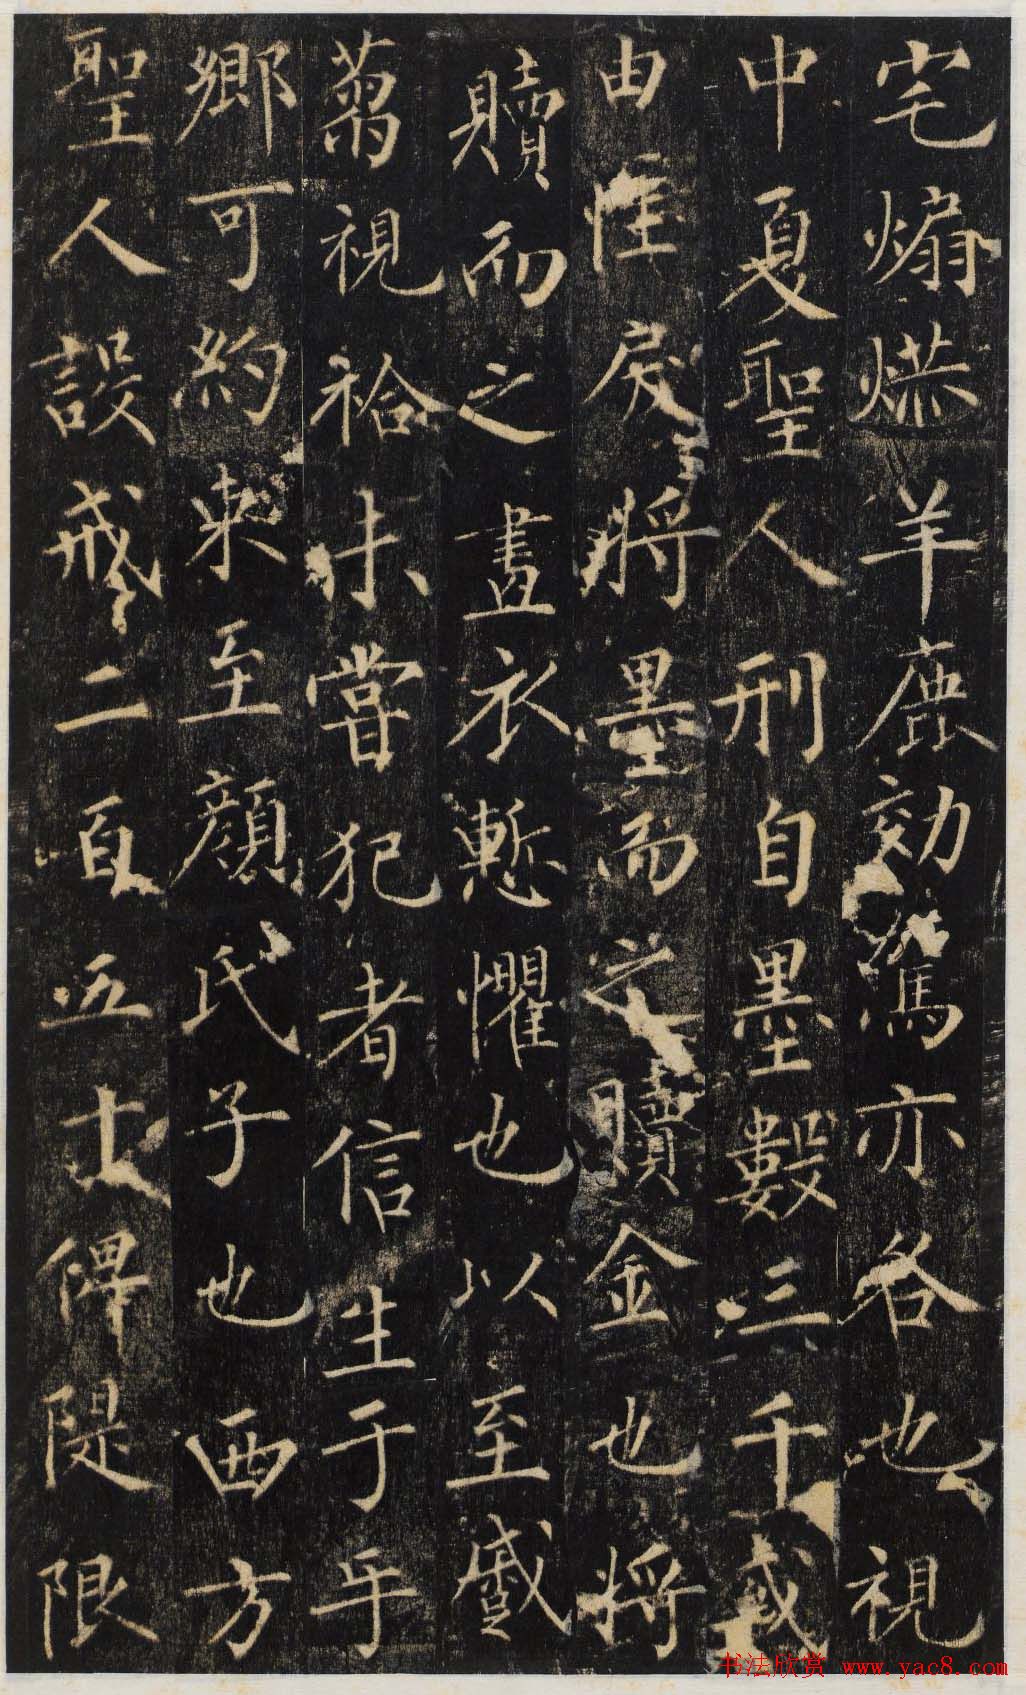 宅煽羊鹿効亦各也視
中夏聖人刑自墨數三千
由性戾將墨而之贖金也將
贖而之畫衣慙懼也以至
蒭視袷未嘗犯者信生于乎
鄉可約束至顏氏子也西方
聖人設戒二百五十俾隄限
书法欣赏 www.yac8.com